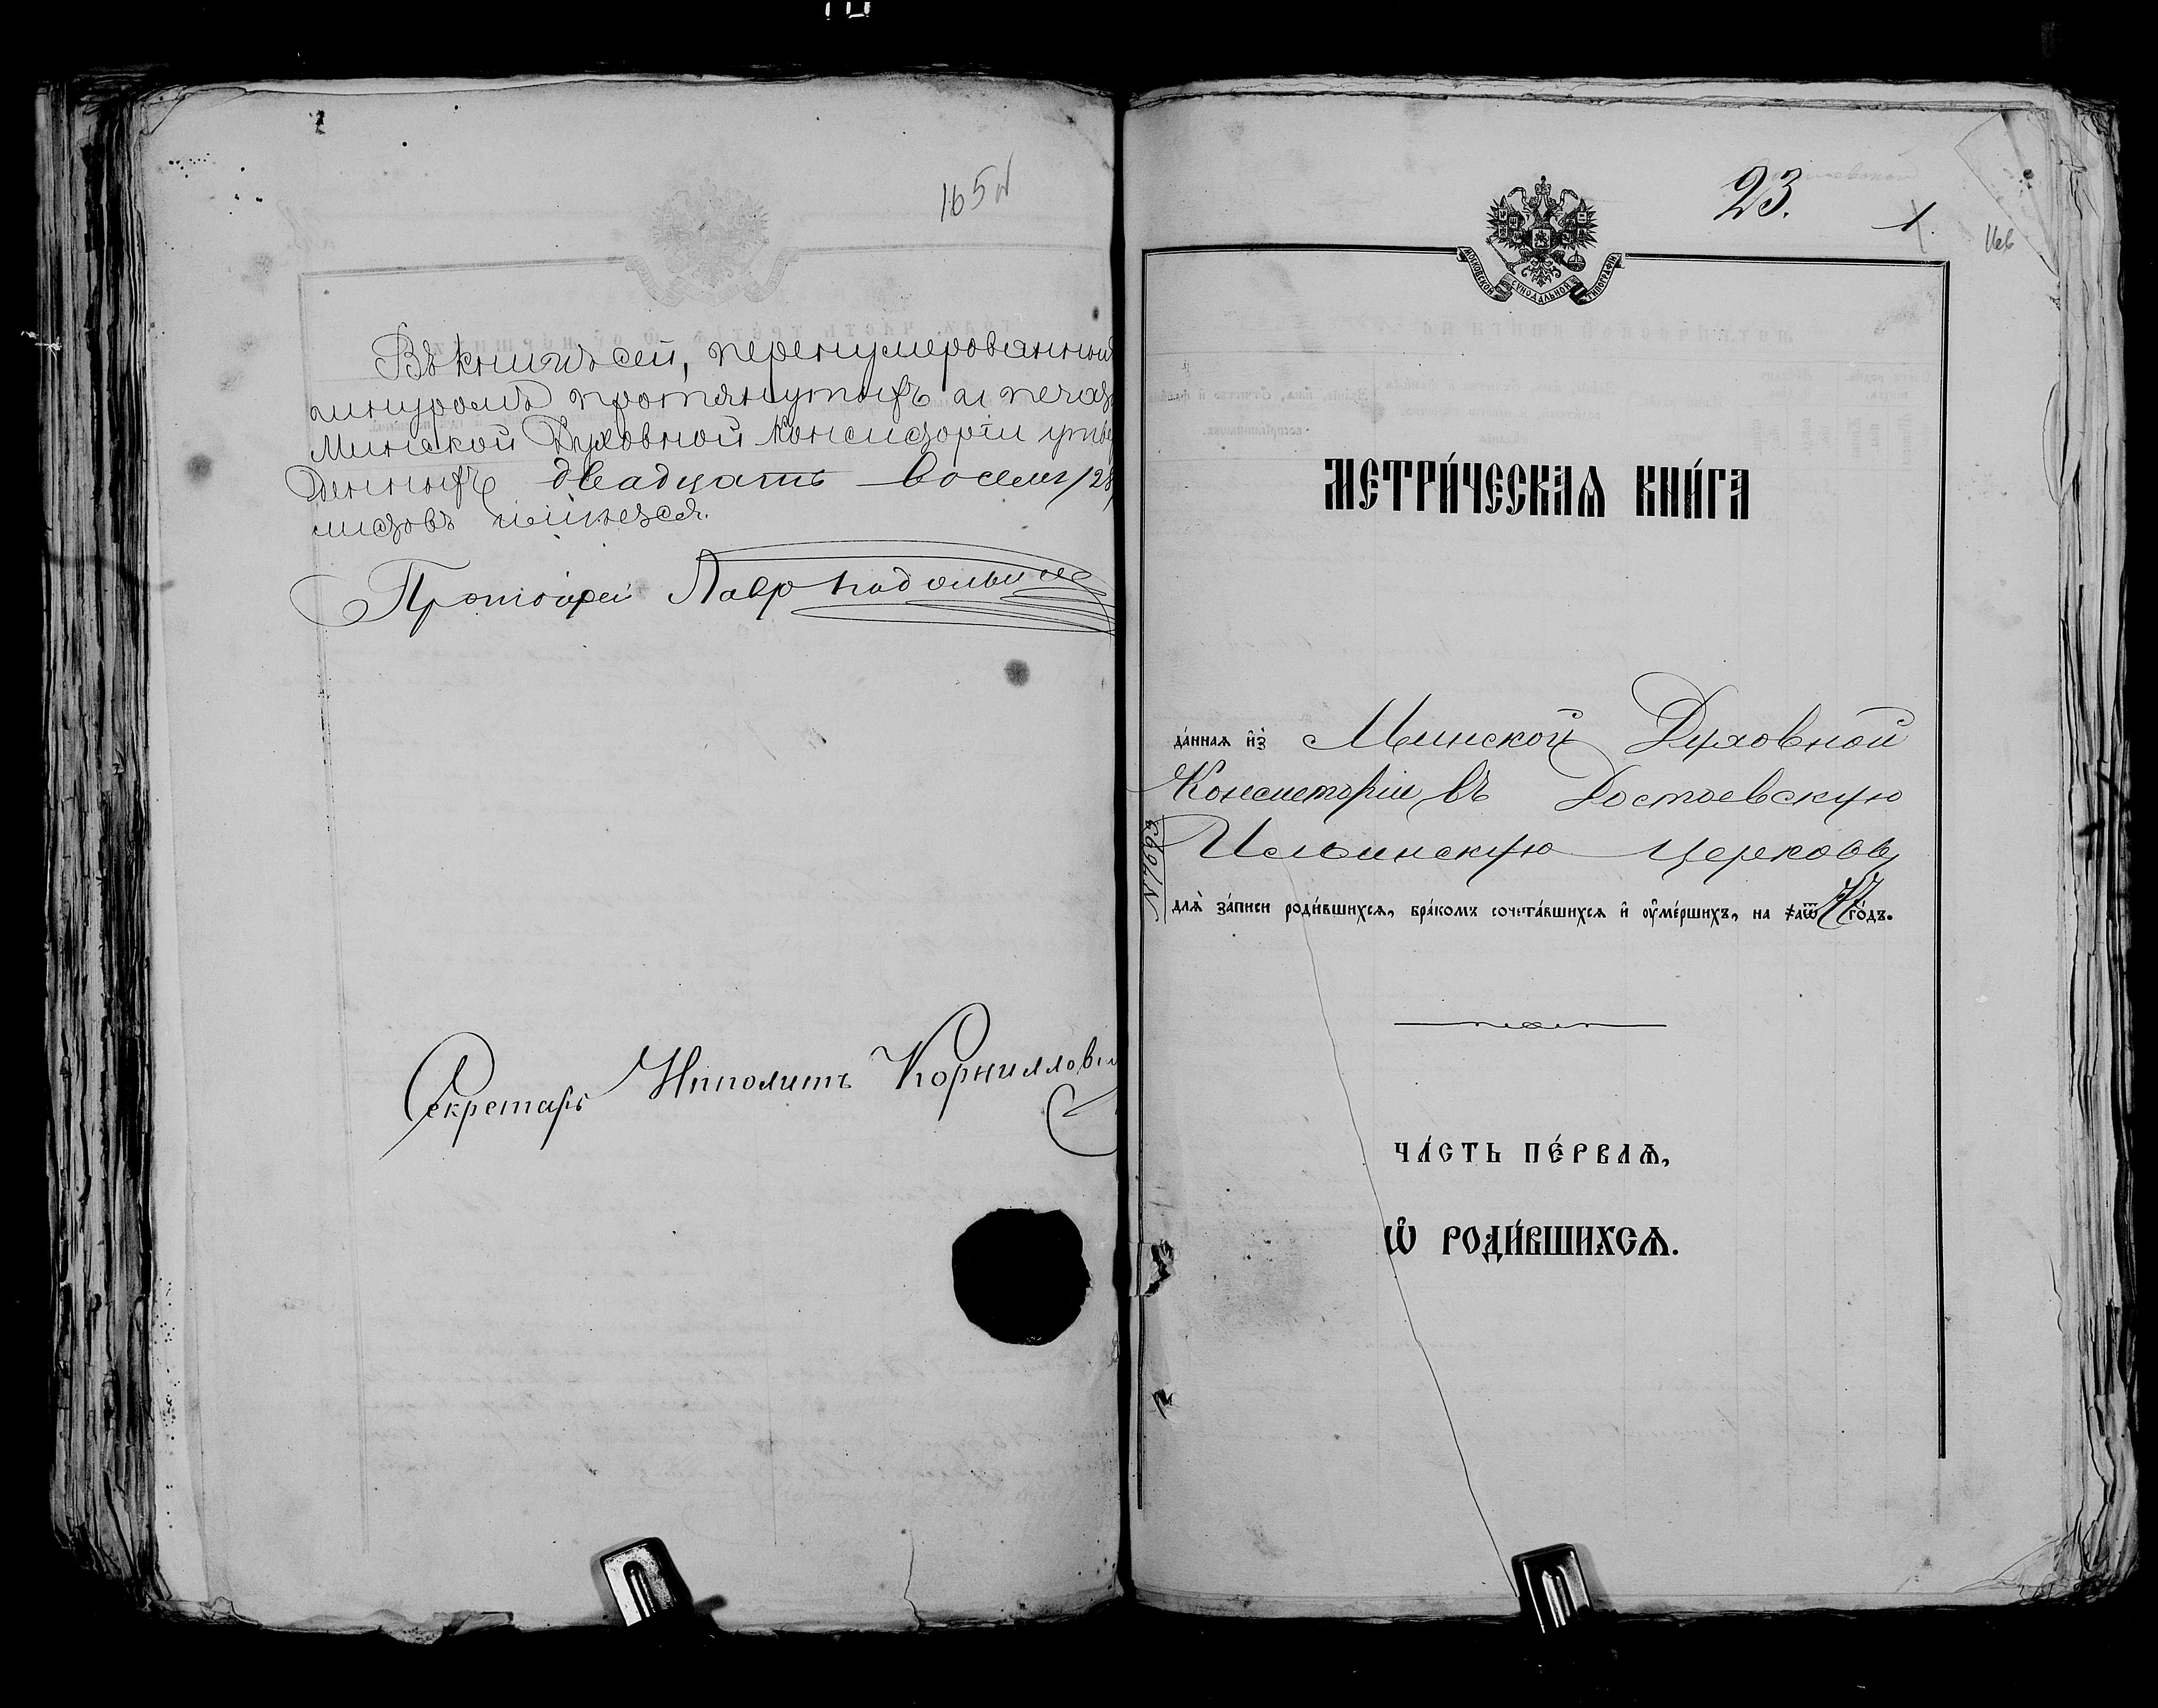 165 об
Въ книгѣ сей, перенумерованныхъ
шнуромъ протянутыхъ и печат
Минской Духовной Консисторіи утвер
жденныхъ двадцать восемь /28/
листовъ имѣется.
Протоіерей Лавръ
Секретарь Ипполитъ Корниллов
23.
1.
166
МОСКОВСКОЙ СѴНОДАЛЬНОЙ ТИПОГРАФІИ
МЕТРИ́ЧЕСКАѦ КНИ́ГА
да́ннаѧ и҆з̾ Минской Духовной
Консисторіи въ Достоевскую
Ильинскую церковь
№ 7693
длѧ̀ за́писи роди́вшихсѧ, бра́комъ сочета́вшихсѧ и҆ ᲂу҆ме́ршихъ, на ҂аѿ го́дъ.
ЧА́СТЬ ПЕ́РВАѦ,
Ѡ҆ РОДИ́ВШИХСѦ.